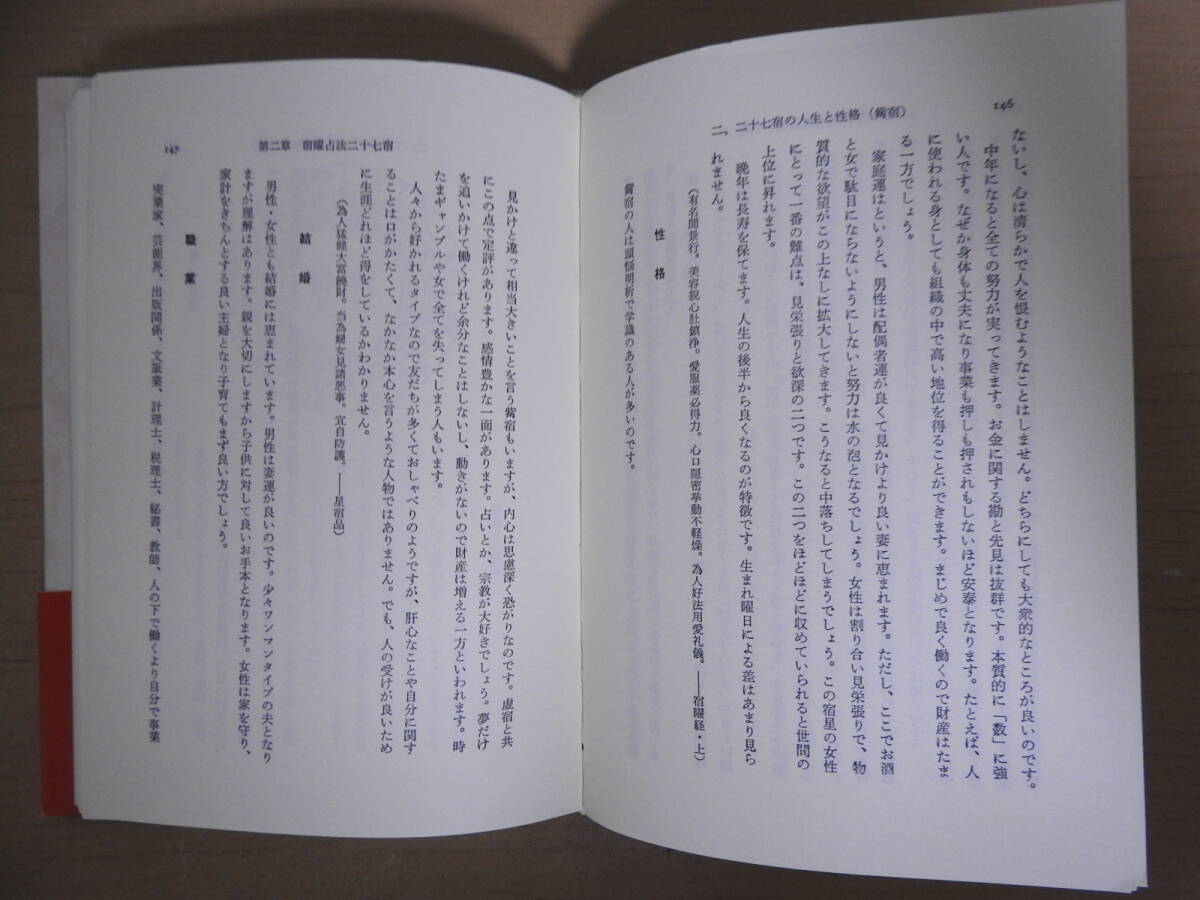 146
二、二十七宿の人生と性格（觜宿）
ないし、心は清らかで人を恨むようなことはしません。どちらにしても大衆的なところが良いのです。
中年になると全ての努力が実ってきます。お金に関する勘と先見は抜群です。本質的に「数」に強
い人です。なぜか身体も丈夫になり事業も押しも押されもしないほど安泰となります。たとえば、人
に使われる身としても組織の中で高い地位を得ることができます。まじめで良く働くので財産はたま
る一方でしょう。
家庭運はというと、男性は配偶者運が良くて見かけより良い妻に恵まれます。ただし、ここでお酒
と女で駄目にならないようにしないと努力は水の泡となるでしょう。女性は割り合い見栄張りで、物
質的な欲望がこの上なしに拡大してきます。こうなると中落ちしてしまうでしょう。この宿星の女性
にとって一番の難点は、見栄張りと欲深の二つです。この二つをほどほどに収めていられると世間の
上位に昇れます。
晩年は長寿を保てます。人生の後半から良くなるのが特徴です。生まれ曜日による差はあまり見ら
れません。
（有名聞景行。美容貌心肚鎮浄。愛服薬必得力。心口隠密挙動不軽燥。為人好法用愛礼儀。――宿曜経・上）
性格
觜宿の人は頭脳明析で学識のある人が多いのです。
147
第二章　宿曜占法二十七宿
見かけと違って相当大きいことを言う觜宿もいますが、内心は思慮深く恐がりなのです。虚宿と共
にこの点で定評があります。感情豊かな一面があります。占いとか、宗教が大好きでしょう。夢だけ
を追いかけて働くけれど余分なことはしないし、動きがないので財産は増える一方といわれます。時
たまギャンブルや女で全てを失ってしまう人もいます。
人々から好かれるタイプなので友だちが多くておしゃべりのようですが、肝心なことや自分に関す
ることは口がかたくて、なかなか本心を言うような人物ではありません。でも、人の受けが良いため
に生涯どれほど得をしているかわかりません。
（為人猛健大富饒財。当為婦女見諸悪事。宜自防護。――星宿品）
結婚
男性・女性とも結婚には恵まれています。男性は妻運が良いのです。少々ワンマンタイプの夫となり
ますが理解はあります。親を大切にしますから子供に対して良いお手本となります。女性は家を守り、
家計をきちんとする良い主婦となり子育てもまず良い方でしょう。
職業
実業家、芸能界、出版関係、文筆業、計理士、税理士、秘書、教師、人の下で働くより自分で事業